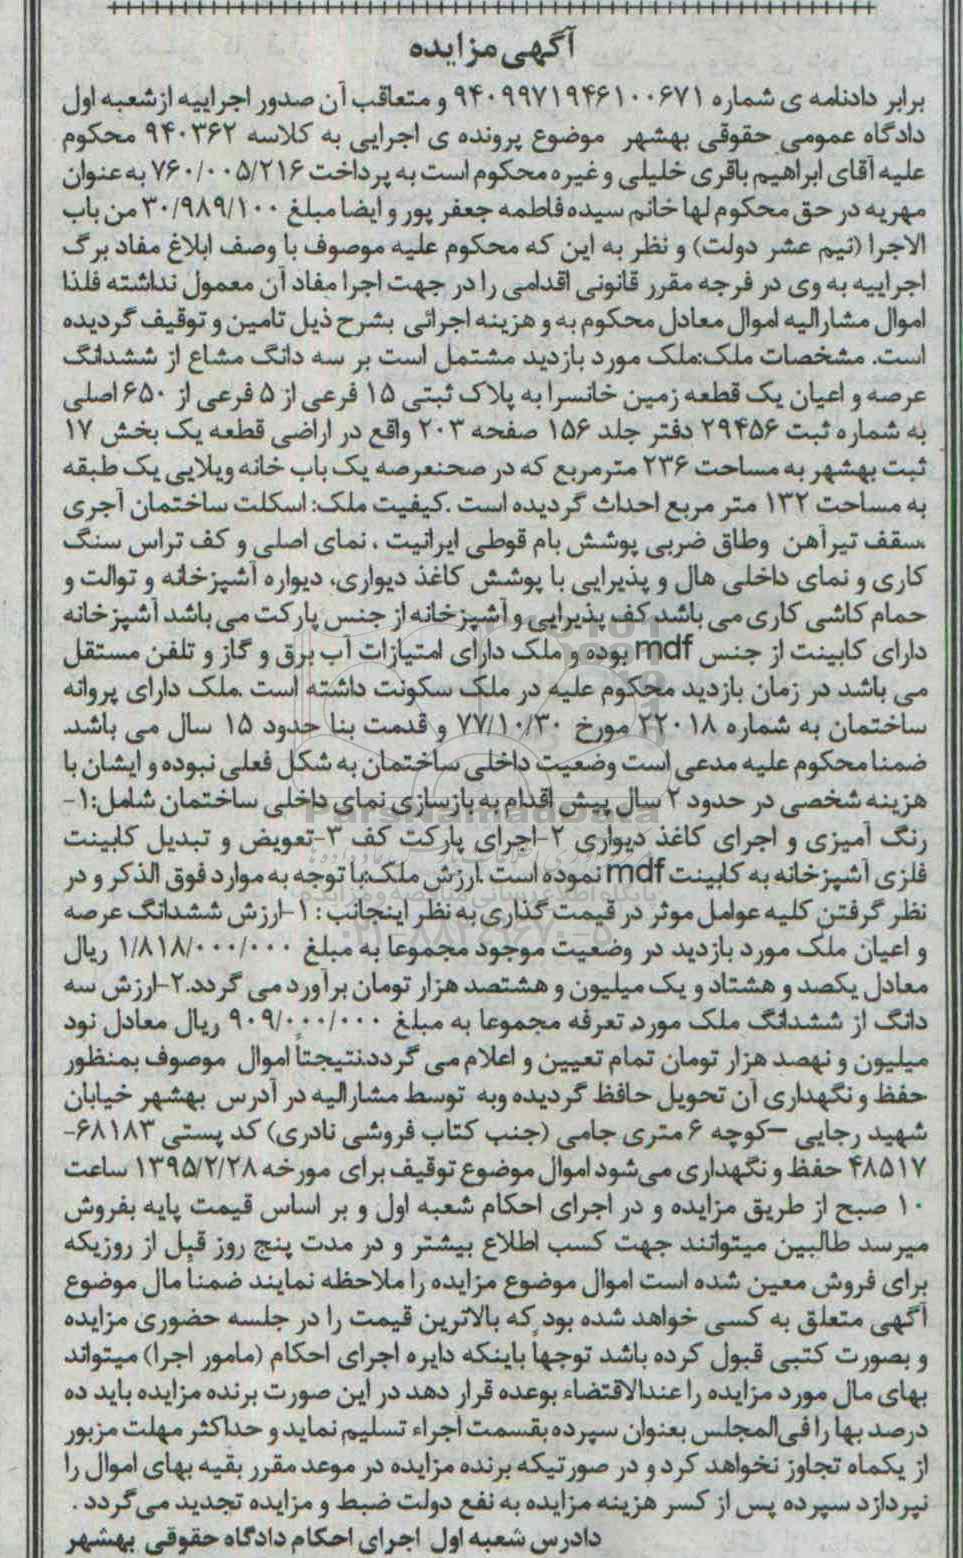 آگهی مزایده
برابر دادنامه ی شماره ۹۴۰۹۹۷۱۹۴۶۱۰۰۶۷۱ و متعاقب آن صدور اجراییه ازشعبه اول
دادگاه عمومی حقوقی بهشهر موضوع پرونده ی اجرایی به کلاسه ۹۴۰۳۶۲ محکوم
علیه آقای ابراهیم باقری خلیلی و غیره محکوم است به پرداخت ۷۶۰/۰۰۵/۲۱۶ به عنوان
مهریه در حق محکوم لها خانم سیده فاطمه جعفر پور و ایضا مبلغ ۳۰/۹۸۹/۱۰۰ من باب
الاجرا (نیم عشر دولت) و نظر به این که محکوم علیه موصوف با وصف ابلاغ مفاد برگ
اجراییه به وی در فرجه مقرر قانونی اقدامی را در جهت اجرا مفاد آن معمول نداشته فلذا
اموال مشارالیه اموال معادل محکوم به و هزینه اجرائی بشرح ذیل تامین و توقیف گردیده
است. مشخصات ملک:ملک مورد بازدید مشتمل است بر سه دانگ مشاع از ششدانگ
عرصه و اعیان یک قطعه زمین خانسرا به پلاک ثبتی ۱۵ فرعی از ۵ فرعی از ۶۵۰ اصلی
به شماره ثبت ۲۹۴۵۶ دفتر جلد ۱۵۶ صفحه ۲۰۳ واقع در اراضی قطعه یک بخش ۱۷
ثبت بهشهر به مساحت ۲۳۶ مترمربع که در صحنعرصه یک باب خانه ویلایی یک طبقه
به مساحت ۱۳۲ متر مربع احداث گردیده است .کیفیت ملک: اسکلت ساختمان آجری
،سقف تیرآهن وطاق ضربی پوشش بام قوطی ایرانیت ، نمای اصلی و کف تراس سنگ
کاری و نمای داخلی هال و پذیرایی با پوشش کاغذ دیواری، دیواره آشپزخانه و توالت و
حمام کاشی کاری می باشد کف پذیرایی و آشپزخانه از جنس پارکت می باشد آشپزخانه
دارای کابینت از جنس mdf بوده و ملک دارای امتیازات آب برق و گاز و تلفن مستقل
می باشد در زمان بازدید محکوم علیه در ملک سکونت داشته است .ملک دارای پروانه
ساختمان به شماره ۲۲۰۱۸ مورخ ۷۷/۱۰/۳۰ و قدمت بنا حدود ۱۵ سال می باشد.
ضمنا محکوم علیه مدعی است وضعیت داخلی ساختمان به شکل فعلی نبوده و ایشان با
هزینه شخصی در حدود ۲ سال پیش اقدام به بازسازی نمای داخلی ساختمان شامل:۱-
رنگ آمیزی و اجرای کاغذ دیواری ۲-اجرای پارکت کف ۳-تعویض و تبدیل کابینت
فلزی آشپزخانه به کابینت mdf نموده است .ارزش ملک:با توجه به موارد فوق الذکر و در
نظر گرفتن کلیه عوامل موثر در قیمت گذاری به نظر اینجانب : ۱-ارزش ششدانگ عرصه
و اعیان ملک مورد بازدید در وضعیت موجود مجموعا به مبلغ ۱/۸۱۸/۰۰۰/۰۰۰ ریال
معادل یکصد و هشتاد و یک میلیون و هشتصد هزار تومان برآورد می گردد.۲-ارزش سه
دانگ از ششدانگ ملک مورد تعرفه مجموعا به مبلغ ۹۰۹/۰۰۰/۰۰۰ ریال معادل نود
میلیون و نهصد هزار تومان تمام تعیین و اعلام می گردد.نتیجتاً اموال موصوف بمنظور
حفظ و نگهداری آن تحویل حافظ گردیده وبه توسط مشارالیه در آدرس بهشهر خیابان
شهید رجایی –کوچه ۶ متری جامی (جنب کتاب فروشی نادری) کد پستی ۶۸۱۸۳-
۴۸۵۱۷ حفظ و نگهداری می‌شود اموال موضوع توقیف برای مورخه ۱۳۹۵/۲/۲۸ ساعت
۱۰ صبح از طریق مزایده و در اجرای احکام شعبه اول و بر اساس قیمت پایه بفروش
میرسد طالبین میتوانند جهت کسب اطلاع بیشتر و در مدت پنج روز قبل از روزیکه
برای فروش معین شده است اموال موضوع مزایده را ملاحظه نمایند ضمناً مال موضوع
آگهی متعلق به کسی خواهد شده بود که بالاترین قیمت را در جلسه حضوری مزایده
و بصورت کتبی قبول کرده باشد توجهاً باینکه دایره اجرای احکام (مامور اجرا) میتواند
بهای مال مورد مزایده را عندالاقتضاء بوعده قرار دهد در این صورت برنده مزایده باید ده
درصد بها را فی‌المجلس بعنوان سپرده بقسمت اجراء تسلیم نماید و حداکثر مهلت مزبور
از یکماه تجاوز نخواهد کرد و در صورتیکه برنده مزایده در موعد مقرر بقیه بهای اموال را
نپردازد سپرده پس از کسر هزینه مزایده به نفع دولت ضبط و مزایده تجدید می‌گردد .
دادرس شعبه اول اجرای احکام دادگاه حقوقی بهشهر